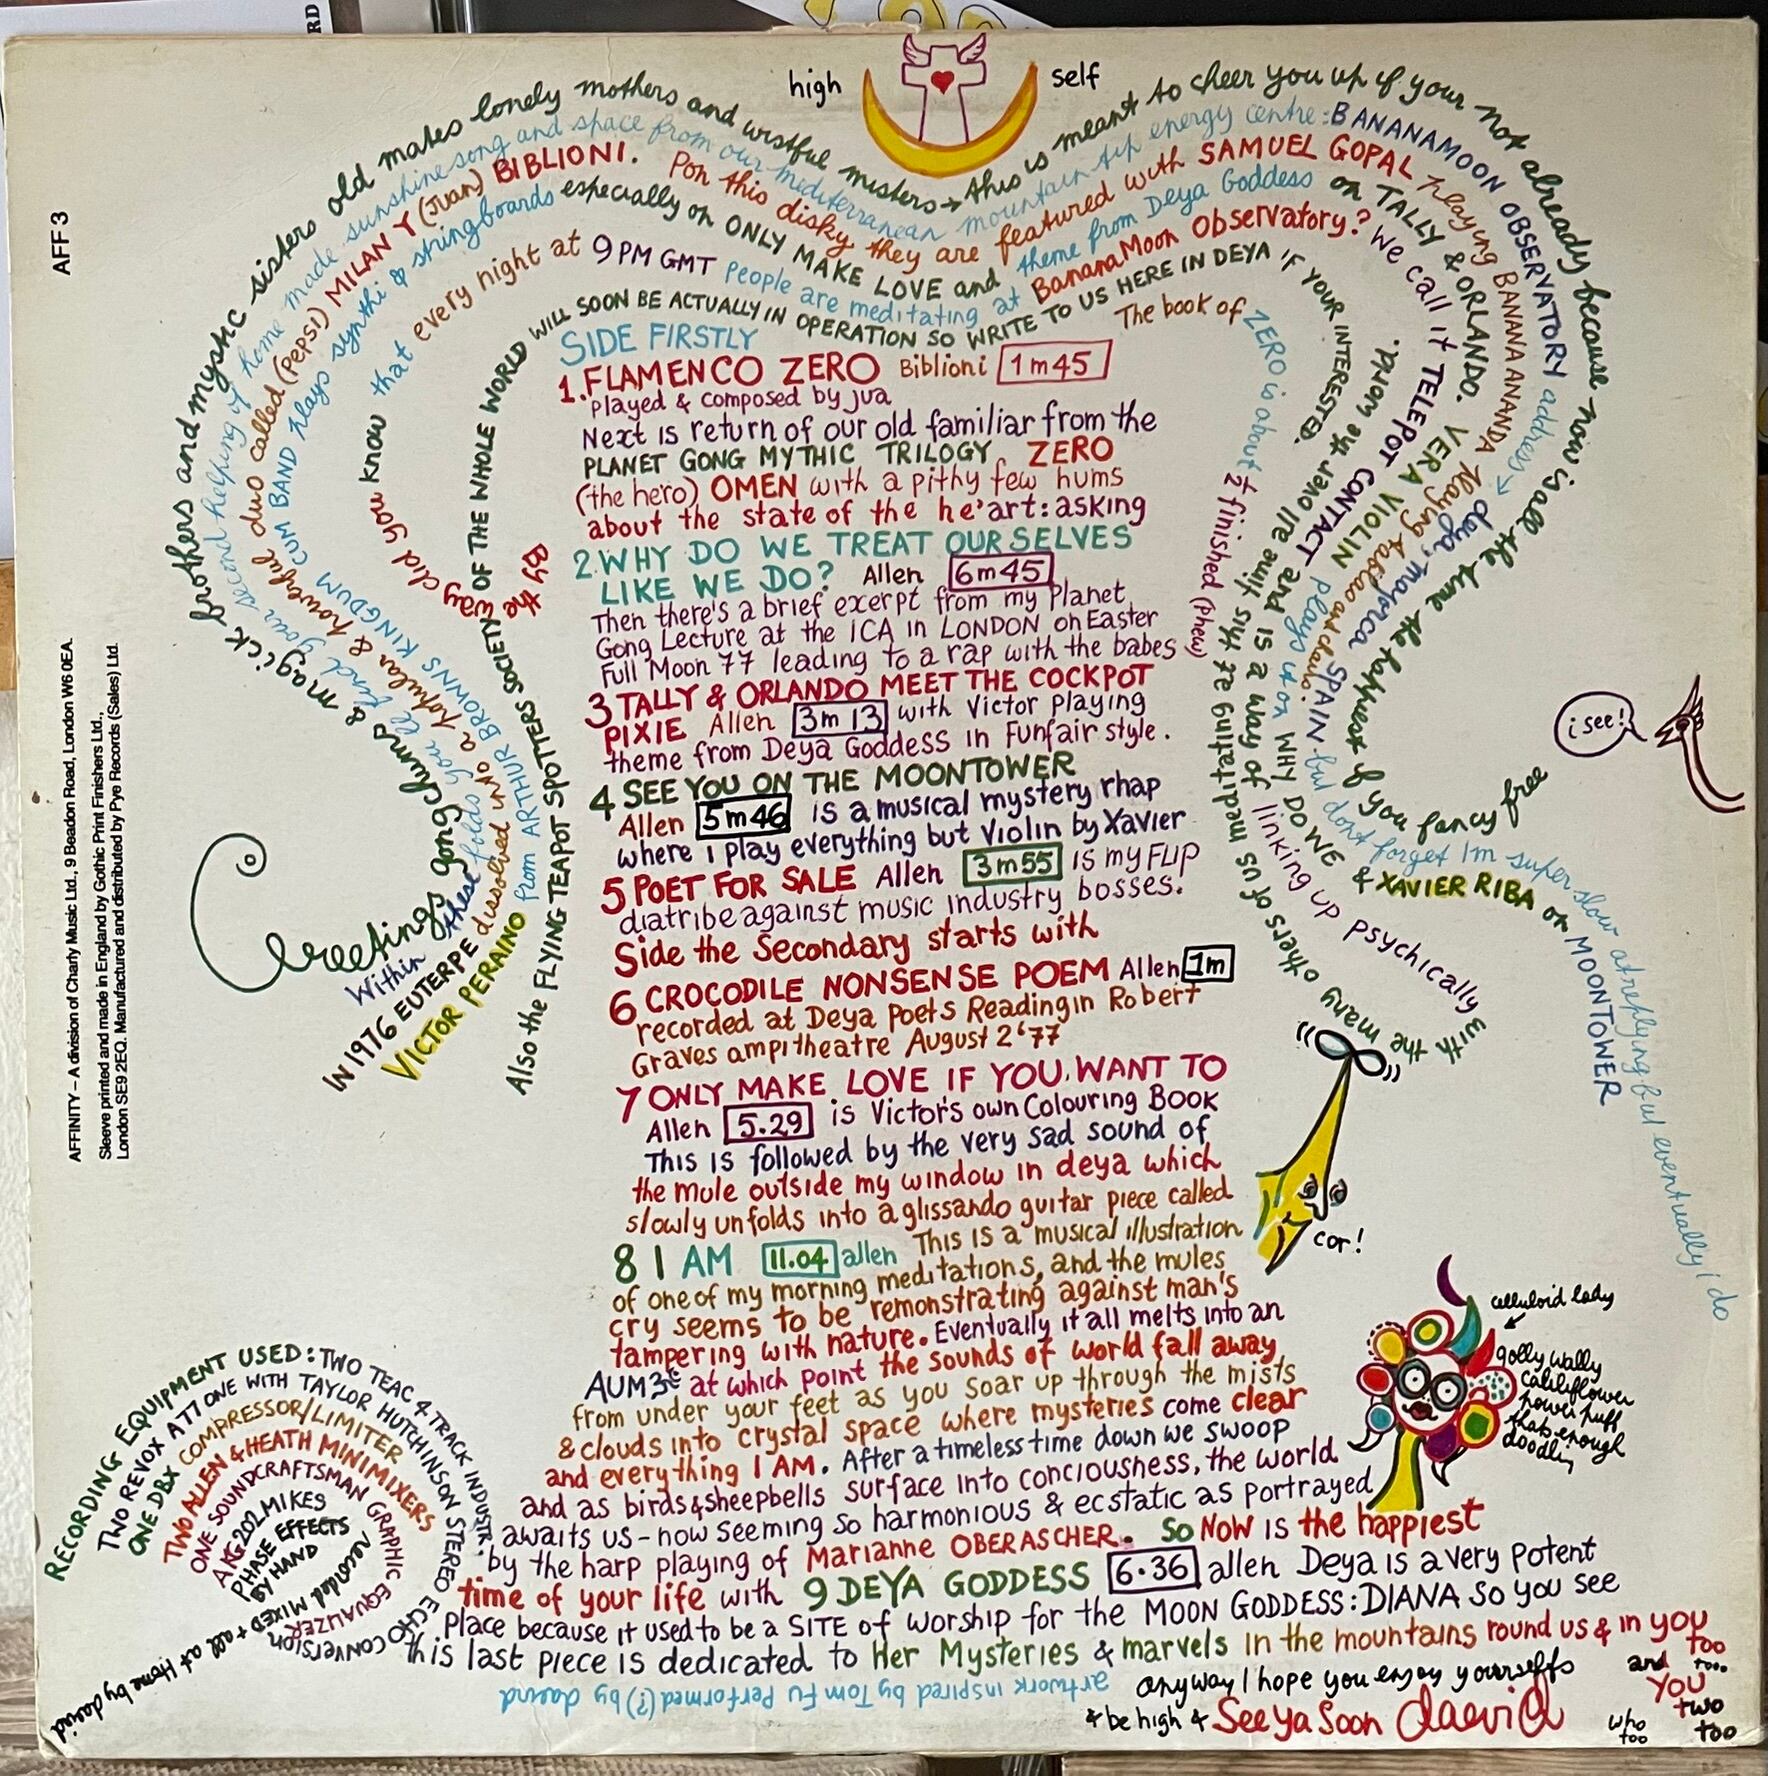 AFF 3
AFFINITY – A division of Charly Music Ltd., 9 Beadon Road, London W6 0EA.
Sleeve printed and made in England by Gothic Print Finishers Ltd.,
London SE9 2EQ. Manufactured and distributed by Pye Records (Sales) Ltd.
high
self
Greetings gong chums & magick brothers and mystic sisters old makes lonely mothers and wistful misters → this is meant to cheer you up if your not already because now is all the time the happiest if you fancy free
Within these folds you ll find your second helping of home made sunshine song and space from our mediterranean mountain tip energy centre: BANANAMOON OBSERVATORY address → deya, majorca SPAIN but dont forget Im super slow at replying but eventually i do
IN 1976 EUTERPE dissolved into a popular & powerful duo called (Pepsi) MILAN Y (Juan) BIBLIONI. Pon this disky they are featured with SAMUEL GOPAL playing BANANA ANANDA playing tablao and claio! & XAVIER RIBA on MOONTOWER
VICTOR PERAINO from ARTHUR BROWN'S KINGDUM CUM BAND plays synthi & springboards especially on ONLY MAKE LOVE and theme from Deya Goddess on TALLY & ORLANDO. VERA VIOLIN plays it on WHY DO WE
By the way did you know that every night at 9 PM GMT people are meditating at BananaMoon Observatory? We call it TELEPOT CONTACT and is a way of linking up psychically with the many others of us meditating 2e style time all over the world.
Also the FLYING TEAPOT SPOTTERS SOCIETY OF THE WHOLE WORLD WILL SOON BE ACTUALLY IN OPERATION SO WRITE TO US HERE IN DEYA IF YOUR INTERESTED.
The book of ZERO is about ½ finished (phew)
SIDE FIRSTLY
1. FLAMENCO ZERO Biblioni 1m45
played & composed by Jua
Next is return of our old familiar from the
PLANET GONG MYTHIC TRILOGY ZERO
(the hero) OMEN with a pithy few hums
about the state of the he'art: asking
2. WHY DO WE TREAT OURSELVES
LIKE WE DO? Allen 6m45
Then there's a brief excerpt from my Planet
Gong Lecture at the ICA in LONDON on Easter
Full Moon 77 leading to a rap with the babes
3 TALLY & ORLANDO MEET THE COCKPOT
PIXIE Allen 3m13 with Victor playing
theme from Deya Goddess in Funfair style.
4 SEE YOU ON THE MOONTOWER
Allen 5m46 is a musical mystery rhap
where I play everything but Violin by Xavier
5 POET FOR SALE Allen 3m55 is my FLIP
diatribe against music industry bosses.
Side the Secondary starts with
6 CROCODILE NONSENSE POEM Allen 1m
recorded at Deya Poets Reading in Robert
Graves ampitheatre August 2 '77
7 ONLY MAKE LOVE IF YOU WANT TO
Allen 5.29 is Victor's own Colouring Book
This is followed by the very sad sound of
the mule outside my window in deya which
slowly unfolds into a glissando guitar piece called
8 I AM 11.04 allen This is a musical illustration
of one of my morning meditations, and the mules
cry seems to be remonstrating against man's
tampering with nature. Eventually it all melts into an
AUM at which point the sounds of world fall away
from under your feet as you soar up through the mists
& clouds into crystal space where mysteries come clear
and everything I AM. After a timeless time down we swoop
and as birds & sheepbells surface into conciousness, the world
awaits us - now seeming so harmonious & ecstatic as portrayed
by the harp playing of Marianne OBERASCHER. So NOW is the happiest
time of your life with 9 DEYA GODDESS 6.36 allen Deya is a very potent
place because it used to be a SITE of worship for the MOON GODDESS: DIANA so you see
this last piece is dedicated to Her Mysteries & marvels in the mountains round us & in you
too
too..
and
YOU
two
too
who
too
anyway I hope you enjoy yourselfs
& be high & See ya Soon daevid
artwork inspired by Tom Fu Performed(?) by daevid
i see!
cor!
celluloid lady
golly wolly
cauliflower
power puff
thats enough
doodlin
RECORDING EQUIPMENT USED: TWO TEAC 4 TRACK INDUSTR.
TWO REVOX A77 ONE WITH TAYLOR HUTCHINSON STEREO ECHO CONVERSION
ONE DBX COMPRESSOR/LIMITER
TWO ALLEN & HEATH MINIMIXERS
ONE SOUNDCRAFTSMAN GRAPHIC EQUALIZER
AKG 202 MIKES
PHASE EFFECTS
BY HAND
recorded MIXED + all at Home by daevid